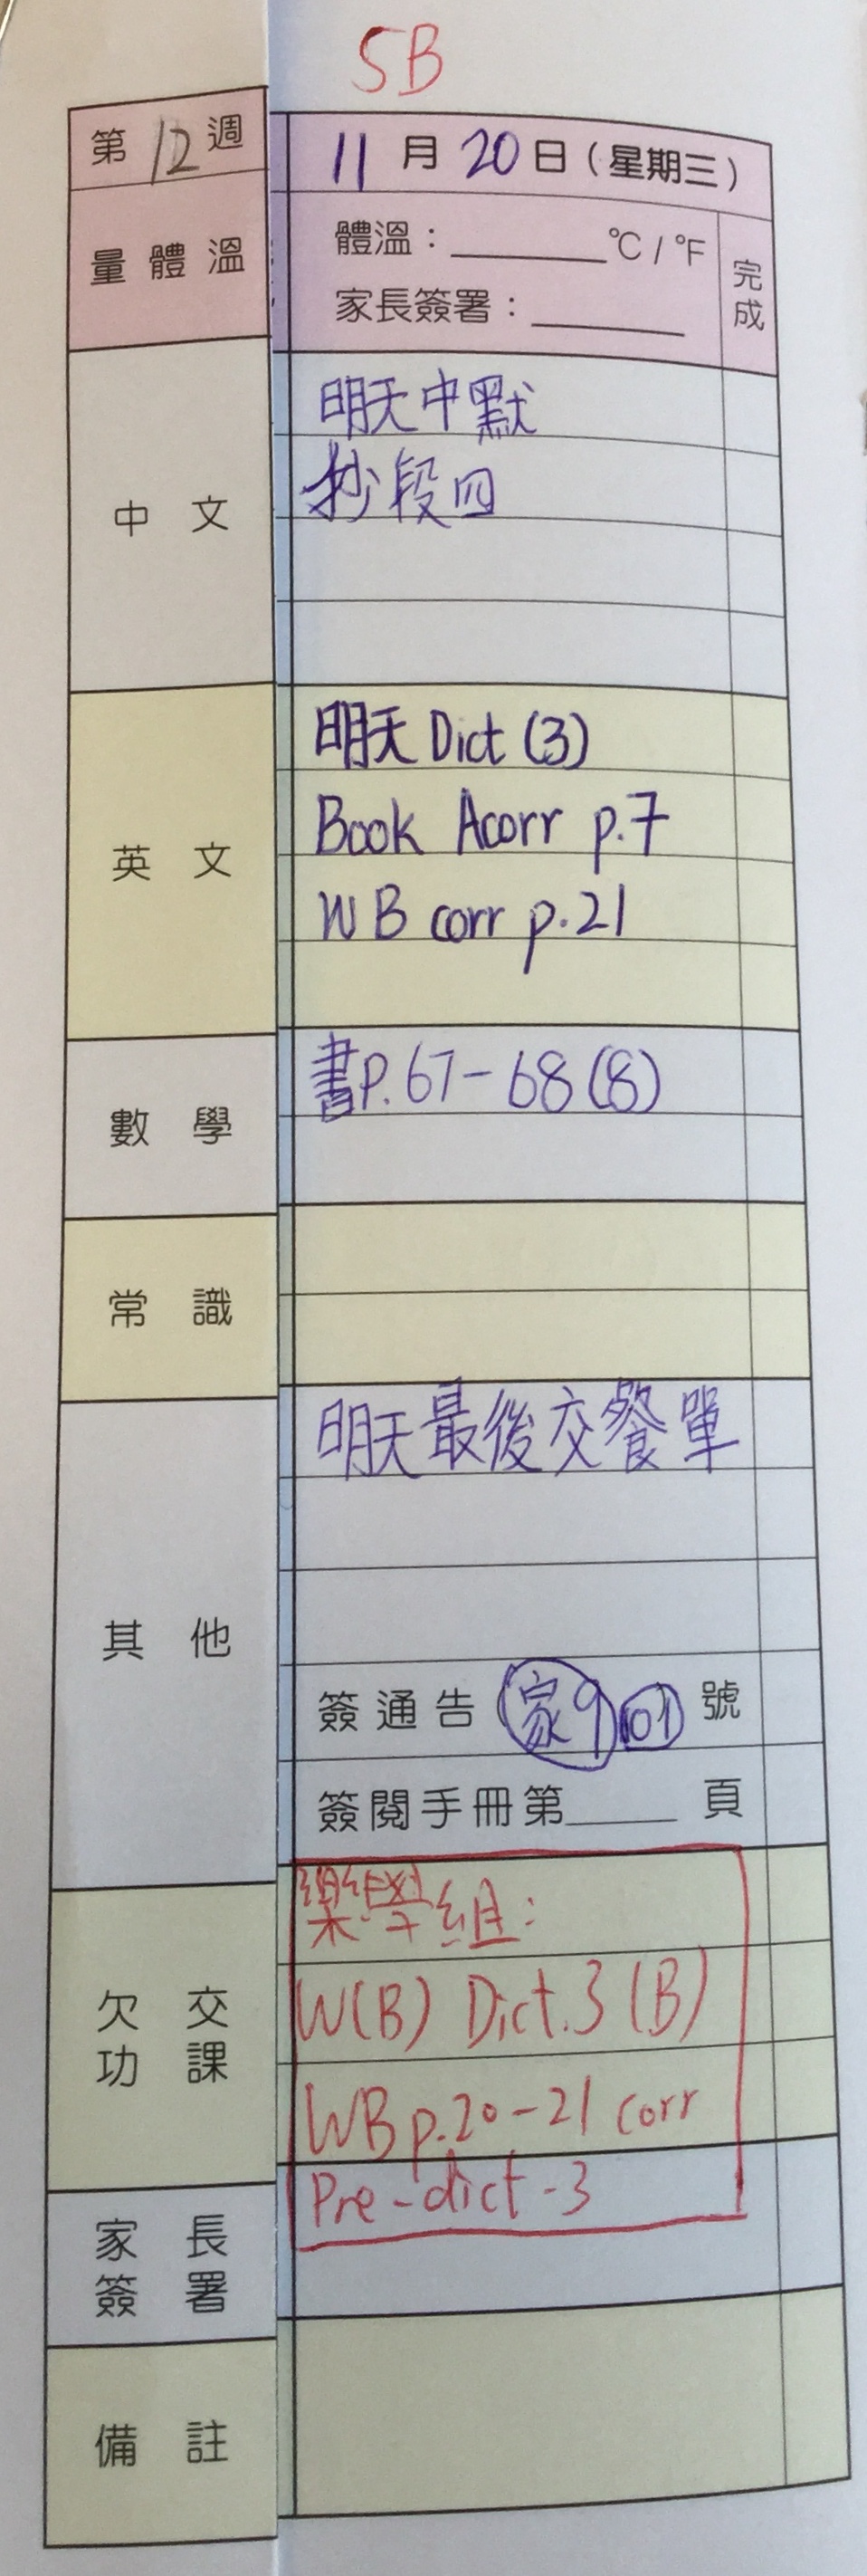 5B
第12週
11月20日(星期三)
量體溫
體溫：______°C / °F
家長簽署：______
完成
中文
明天中默
抄段四
英文
明天 Dict (3)
Book A corr p.7
WB corr p.21
數學
書P.67-68(8)
常識
其他
明天最後交餐單
簽通告 家9 101 號
簽閱手冊第____頁
欠交功課
樂學組：
W(B) Dict.3 (B)
WB p.20-21 corr
Pre-dict-3
家長簽署
備註